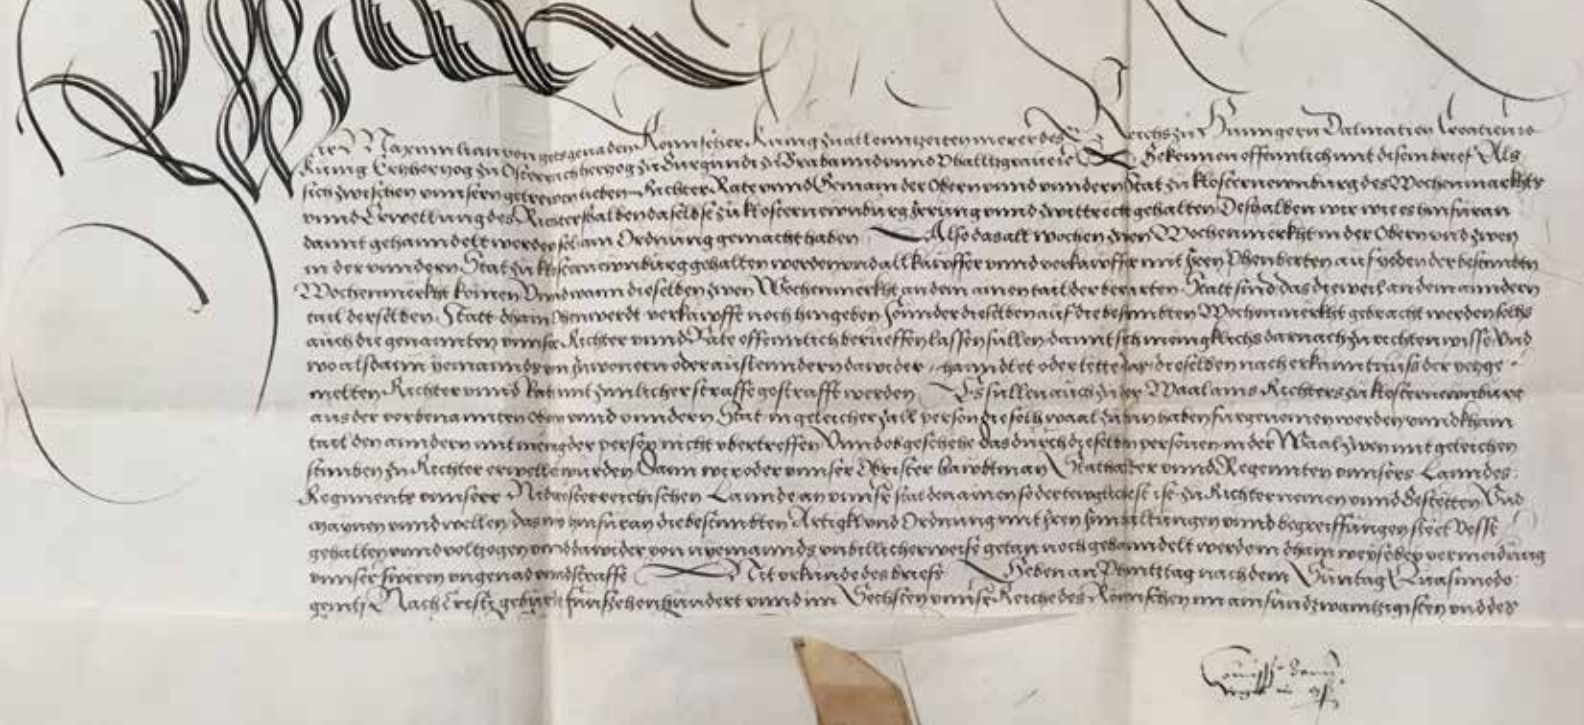 Wir Maximilian von gots genaden Romischer Kunig zu allenntzeiten merer des Reichs zu Hunngern Dalmatien Croatien
Kunig Ertzherzog zu Osterreich herzog zu Burgundi zu Brabannd vnnd Phallitzgraue Bekennen offennlich mit disem brief Als
sich zwischen vnnsern getrewen lieben Richter Rate vnnd Gemain der Obern vnnd vnndern Stat zu klosternewnburg des Wochenmarkhts
vnnd Erwellung des Richters halben daselbs zu klosternewnburg Irrung vnnd zwittrecht gehalten Deshalben wir wie es hinfuran
damit gehanndelt werden sol ain Ordnung gemacht haben Also das all wochen zwen Wochenmerkht in der Obern vnd zwen
in der vnndern Stat zu klosternewnburg gehalten werden vnd all kawffer vnnd verkawffer mit Iren auf yeden der bestimbten
Wochenmerkht komen Vnd wann dieselben zwen Wochenmerkht an dem ainen tail der berurten Statt sind das dieweil an dem anndern
tail derselben Statt dhain werdt verkawfft noch hingeben sonnder dieselben auf die bestimbten Wochenmerkht gebracht werden solhs
auch die genannten vnnser Richter vnnd Räte offennlich berueffen lassen sullen damit sich menigklich darnach zu richten wisse Vnd
wo alsdann yemannds von Inwonern oder auslenndern dawider hanndlet oder tette das dieselben nach erkanntnuss der yetzge-
melten Richter vnnd Rat mit zimlicher straffe gestrafft werden Es sullen auch zu der Waal ains Richters zu klosternewnburg
aus der vorbenannten Obern vnnd vnndern Stat in geleicher zall person dieselb waal zuthun haben furgenomen werden vnnd khain
tail den anndern mit menig der person nicht vbertreffen Vnnd ob geschehe das durch dieselben personen in der Waal zwen mit geleichen
stimben zu Richter erwellt wurden Dann wir oder vnnser Obrister haubtman Stathalter vnnd Regennten vnnsers Lanndes
Regiments vnnserr Niderösterreichischen Lannde an vnnser stat den ainen so der teuglichest ist zu Richter nemen vnnd bestetten Vnd
maynen vnnd wellen das nu hinfuran die bestimbten Artigkl vnd Ordnung mit Iren Innhaltungen vnnd begreiffungen steet vesst
gehalten vnnd voltzogen vnnd dawider von nyemannds vnbillicherweise getan noch gehanndelt werde in dhain weyse bey vermeidung
vnnser sweren vngenad vnnd straffe Mit vrkund des briefs Geben an Phintztag nach dem Sunntag Quasimodo
geniti Nach Cristi geburt funfzehenhundert vnnd im Sechsten vnnser Reiche des Römischen im ainsundzwaintzigisten vnd des